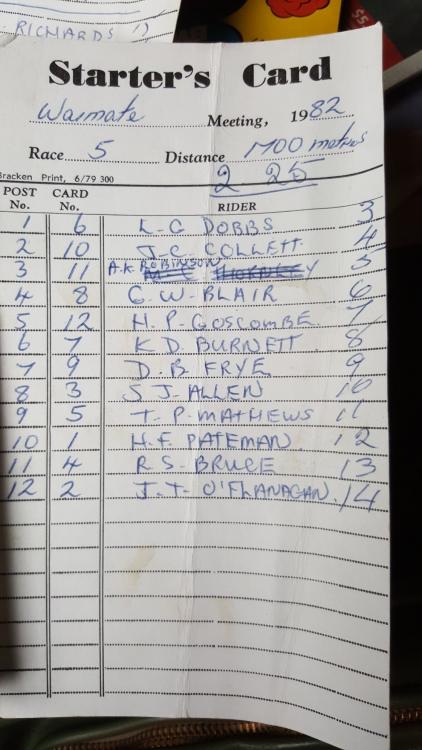 RICHARDS
Starter's Card
Waimate Meeting, 1982
Race 5 Distance 1700 metres
Bracken Print, 6/79 300
2 25
POST No. CARD No. RIDER
1 6 L-G DOBBS 3
2 10 J.C. COLLETT 4
3 11 A.K. ROBINSON 5
4 8 G.W-BLAIR 6
5 12 H.P-GOSCOMBE. 7
6 7 K D. BURNETT 8
7 9 D.B FRYE 9
8 3 S J-ALLEN 10
9 5 T-P-MATHEWS 11
10 1 H.F. PATEMAN. 12
11 4 R.S-BRUCE 13
12 2 J.T- O'FLANAGAN. 14